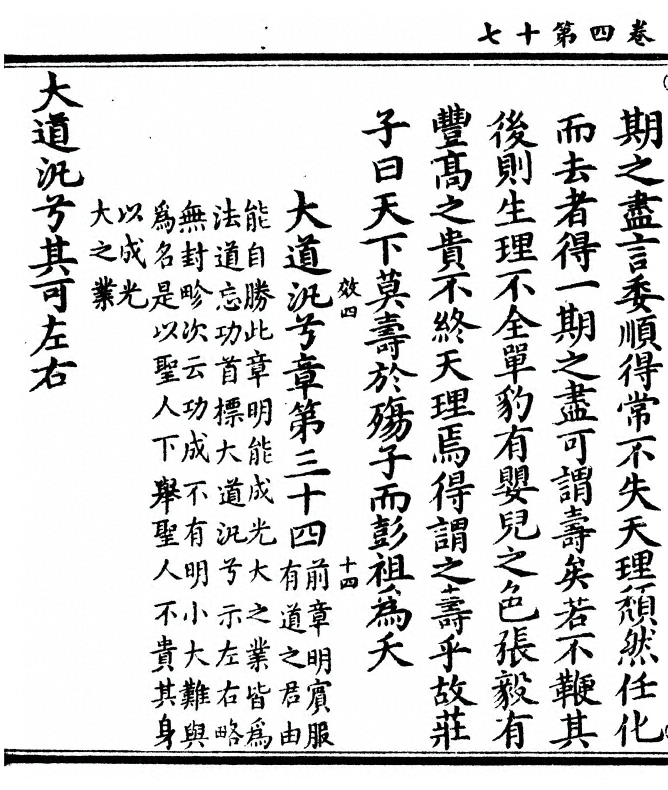 卷四第十七
期之盡言委順得常不失天理頹然任化
而去者得一期之盡可謂壽矣若不鞭其
後則生理不全單豹有嬰兒之色張毅有
豐髙之貴不終天理焉得謂之壽乎故莊
子曰天下莫壽於殤子而彭祖為夭
效四
十四
大道汎兮章第三十四
前章明賓服
有道之君由
能自勝此章明能成光大之業皆爲
法道忘功首標大道汎兮示左右略
無封畛次云功成不有明小大難與
爲名是以聖人下舉聖人不貴其身
以成光
大之業
大道汎兮其可左右